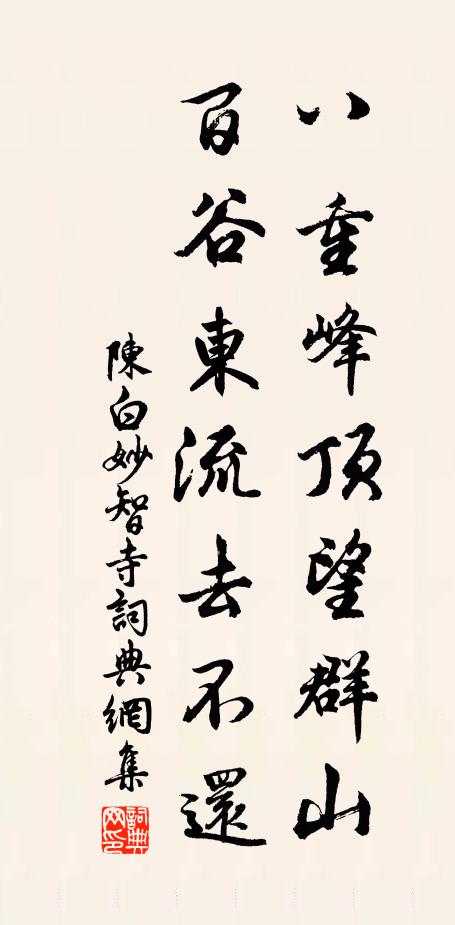 八重峰頂望群山
百谷東流去不還
陳白妙智寺詞典網集
詞典網印